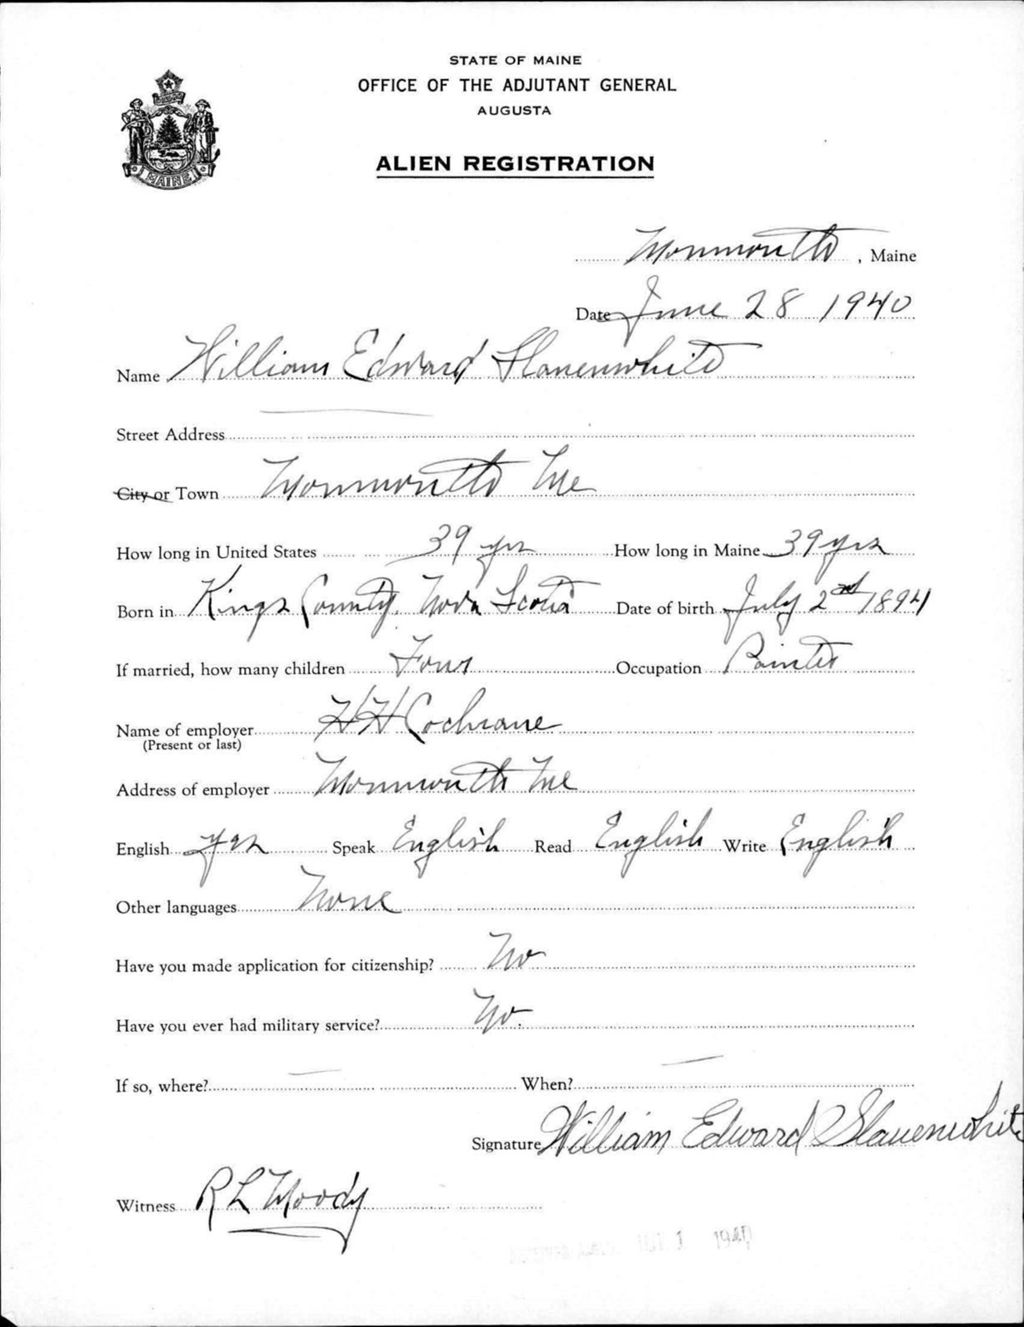 STATE OF MAINE
OFFICE OF THE ADJUTANT GENERAL
AUGUSTA
ALIEN REGISTRATION
MAINE
Monmouth, Maine
Date June 28 1940
Name William Edward Slauenwhite
Street Address —
City or Town Monmouth Me
How long in United States 39 yrs How long in Maine 39 yrs
Born in Kings County, Nova Scotia Date of birth July 2nd 1894
If married, how many children Four Occupation Painter
Name of employer H H Cochrane
(Present or last)
Address of employer Monmouth Me
English yes Speak English Read English Write English
Other languages None
Have you made application for citizenship? No
Have you ever had military service? No.
If so, where? — When? —
Signature William Edward Slauenwhite
Witness R L Moody
1 1940